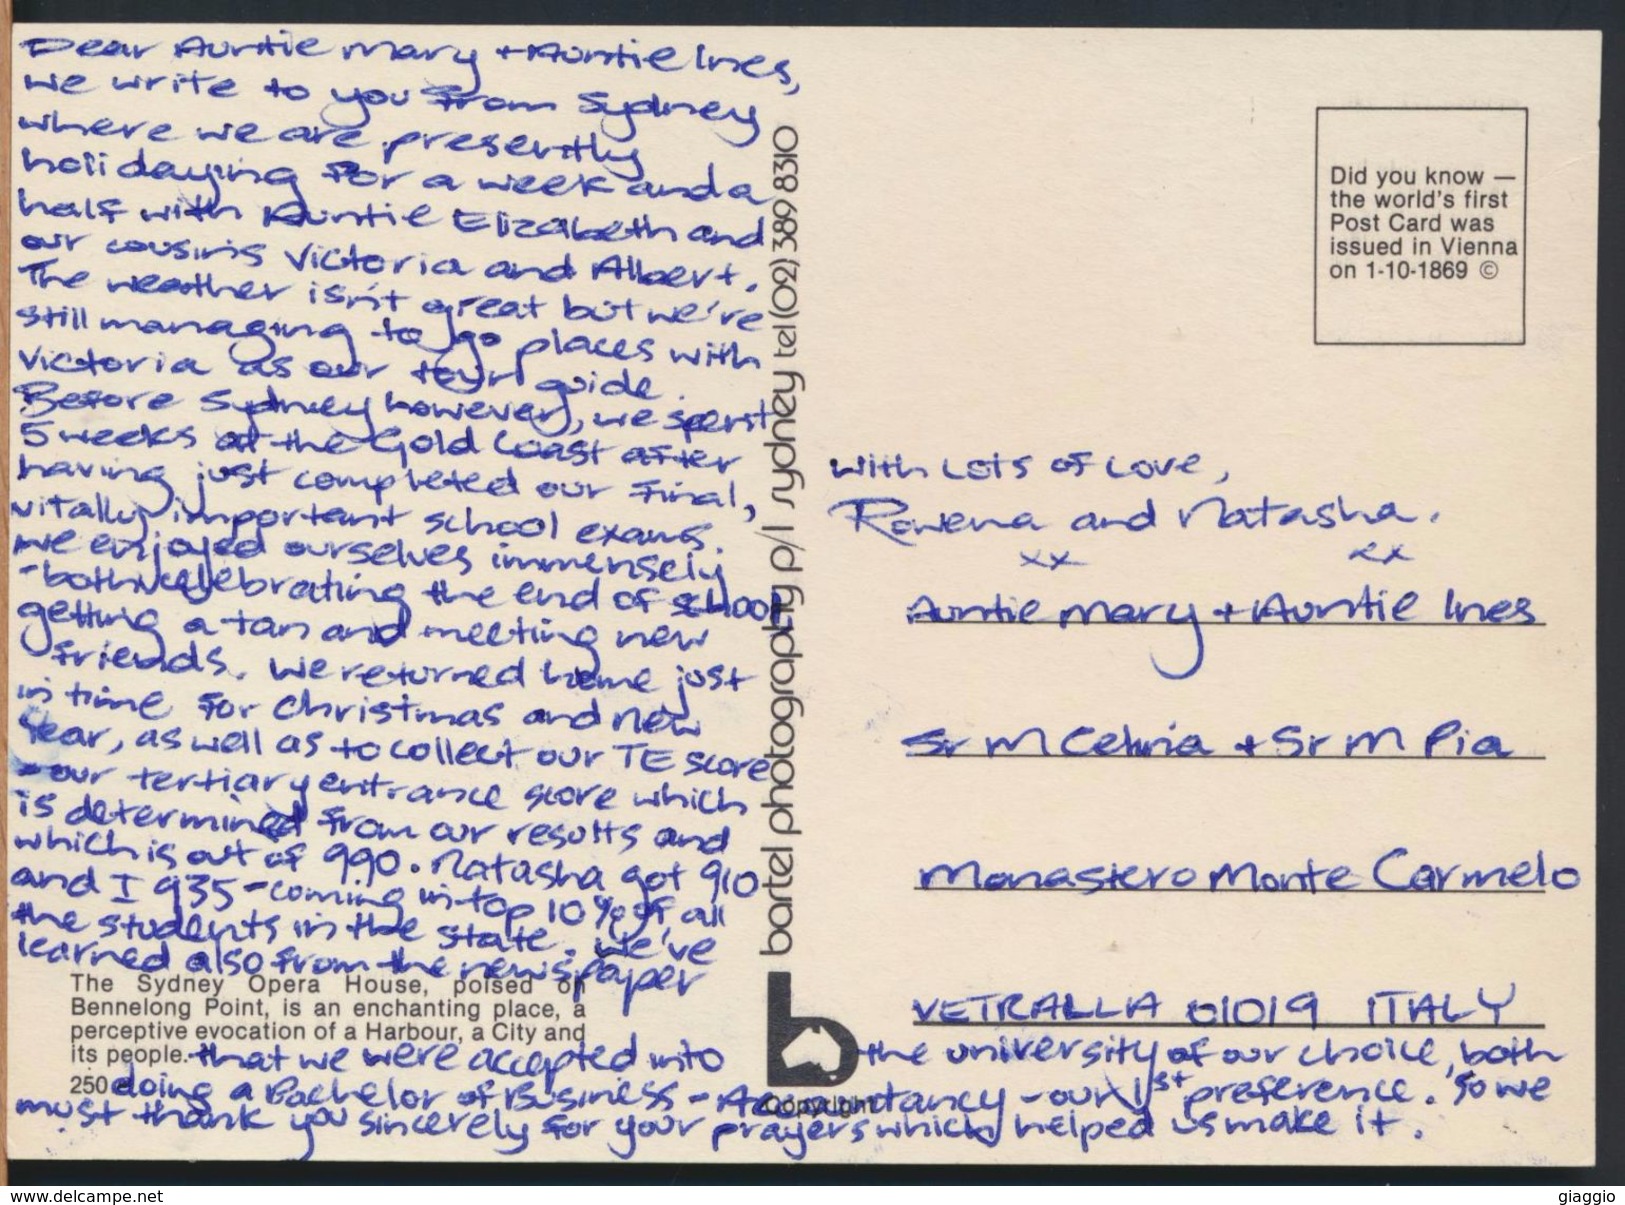 Dear Auntie Mary + Auntie Ines,
we write to you from Sydney
where we are presently
holidaying for a week and a
half with Auntie Elizabeth and
our cousins Victoria and Albert.
The weather isn't great but we're
still managing to go places with
Victoria as our tour guide.
Before Sydney however, we spent
5 weeks at the Gold Coast after
having just completed our final,
vitally important school exams.
We enjoyed ourselves immensely
- both celebrating the end of school
getting a tan and meeting new
friends. We returned home just
in time for Christmas and New
Year, as well as to collect our TE score
- our tertiary entrance score which
is determined from our results and
which is out of 990. Natasha got 910
and I 935 - coming in top 10% of all
the students in the state. We've
learned also from the newspaper
that we were accepted into the university of our choice, both
doing a Bachelor of Business - Accountancy - our 1st preference. So we
must thank you sincerely for your prayers which helped us make it.
With Lots of Love,
Rowena and Natasha.
xx xx
The Sydney Opera House, poised on
Bennelong Point, is an enchanting place, a
perceptive evocation of a Harbour, a City and
its people.
250
bartel photography p/l sydney tel (02) 389 8310
b
Copyright
Did you know —
the world's first
Post Card was
issued in Vienna
on 1-10-1869 ©
Auntie Mary + Auntie Ines
Sr M + Sr M Pia
Monastero Monte Carmelo
VETRALLA 01019 ITALY
www.delcampe.net
giaggio